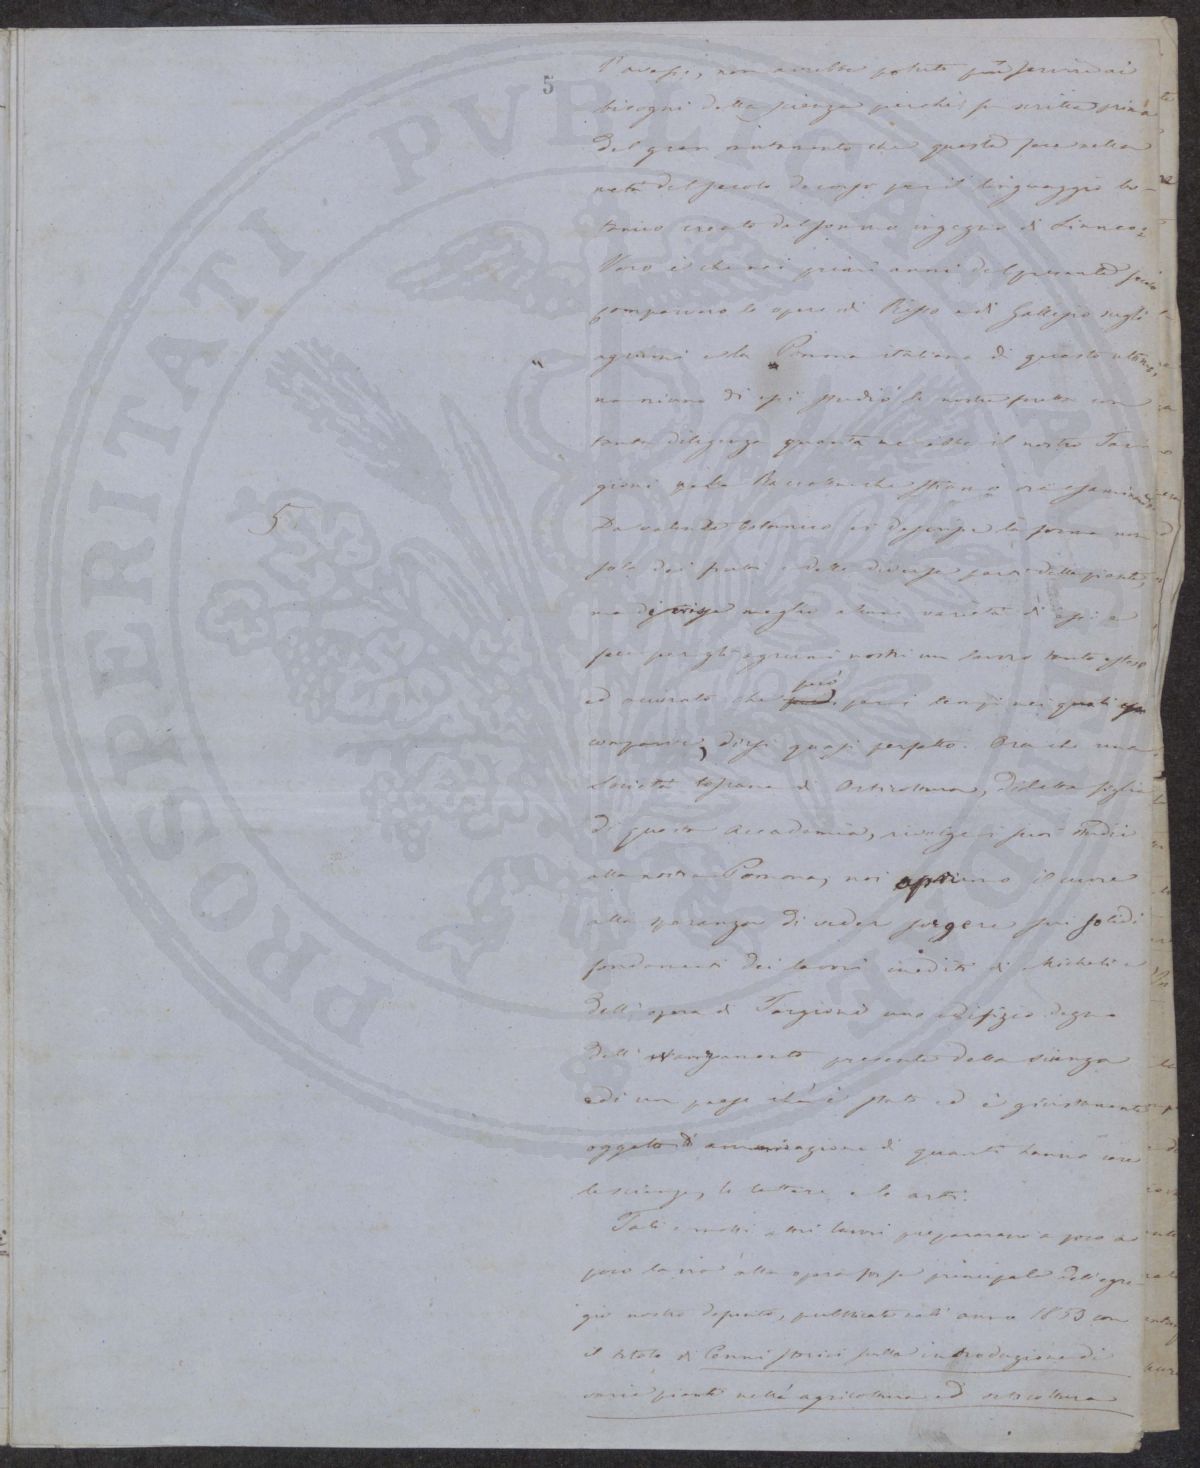 5
l'avesse, non avrebbe potuto più servire ai
bisogni della scienza perché fu scritta prima
del gran mutamento che questa fece nella
metà del secolo decorso per il linguaggio bo-
tanico creato dal sommo ingegno di Linneo.
Vero è che nei primi anni del presente secolo
comparvero le opere di Risso e di Gallesio sugli
agrumi e la Pomona italiana di questo ultimo,
ma niuno di essi studiò le nostre frutta con
tanta diligenza quanta ne ebbe il nostro Tar-
gioni nella Raccolta che stiamo ora esaminando.
5
Da valente botanico ei descrisse la forma non
solo dei frutti e delle diverse parti delle piante,
ma meglio alcune varietà di essi e
fece per gli agrumi nostri un lavoro tanto esteso
ed accurato che può per i tempi nei quali
comparve, dirsi quasi perfetto. Ora che una
Società toscana di Orticoltura, diletta figlia
di questa Accademia, rivolge i suoi studi
alla nostra Pomona, noi apriamo il cuore
alla speranza di veder sorgere sui solidi
fondamenti dei lavori inediti di Micheli e
dell'opera di Targioni uno edifizio degno
dell'avanzamento presente della scienza
e di un paese che è stato ed è giustamente
oggetto di ammirazione di quanti hanno care
le scienze, le lettere e le arti.
Tali e molti altri lavori prepararono a poco a
poco la via alla opera forse principale dell'egre-
gio nostro defunto, pubblicata nell'anno 1853 con
il titolo di Cenni storici sulla introduzione di
varie piante nell'agricoltura ed orticoltura
PROSPERITATI PVBLICAE AVGENDAE